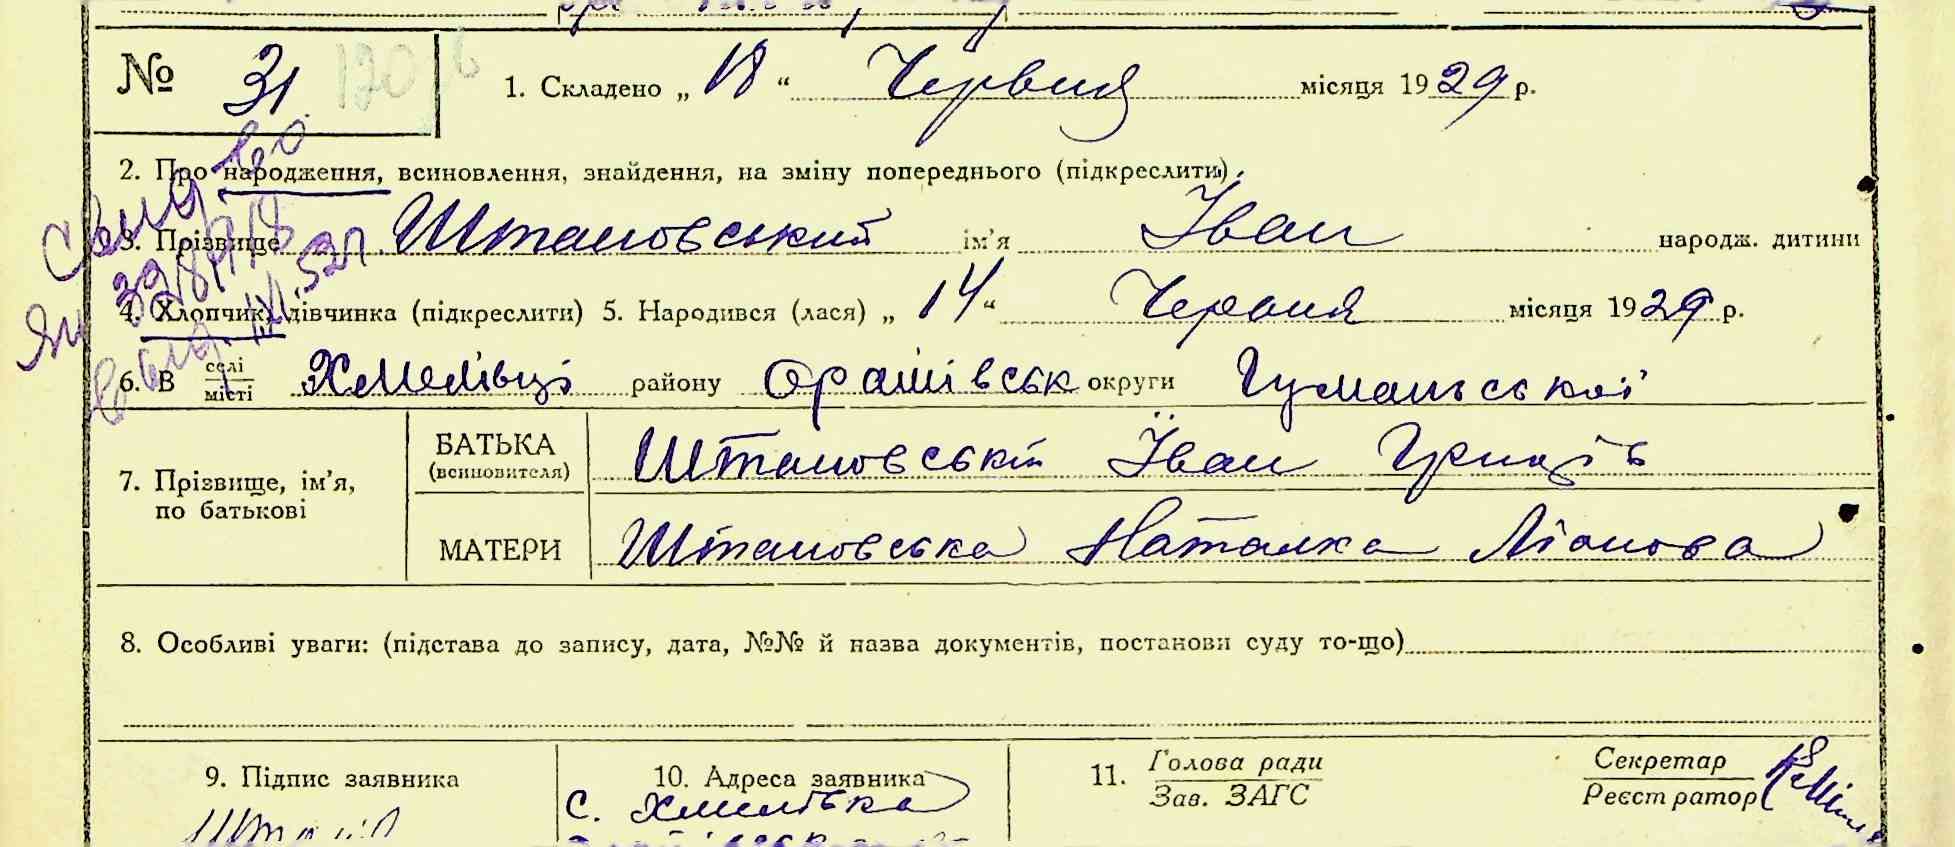 № 31 120
1. Складено „ 18 “ Червня місяця 1929 р.
2. Про народження, всиновлення, знайдення, на зміну попереднього (підкреслити)
3. Прізвище Штановський ім’я Іван народж. дитини
4. Хлопчик, дівчинка (підкреслити) 5. Народився (лася) „ 14 “ Червня місяця 1929 р.
6. В селі/місті Хмелівці району Оратівськ округи Гуманьської
7. Прізвище, ім’я, по батькові
БАТЬКА (всиновителя) Штановській Іван Гриців
МАТЕРИ Штановська Наталка
8. Особливі уваги: (підстава до запису, дата, №№ й назва документів, постанови суду то-що)
9. Підпис заявника
10. Адреса заявника
с. Хмелівка
11. Голова ради
Зав. ЗАГС
Секретар
Реєстратор